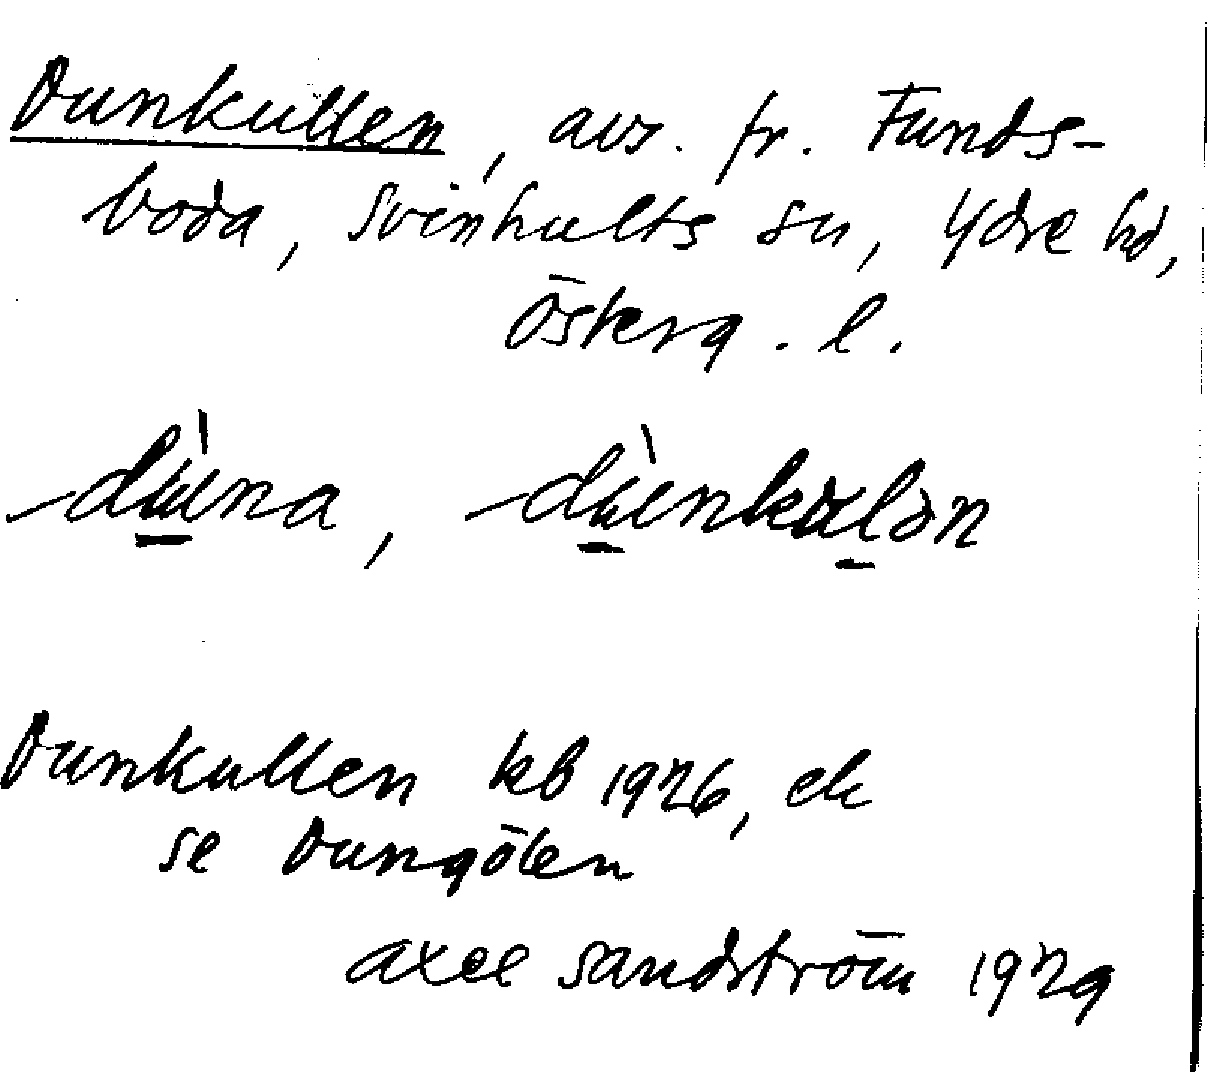 Dunkullen, avs. fr. Funds-
boda, Svinhults sn, Ydre hd,
Österg. l.
Dunkullen kb 1926, ek
se Dungölen
Axel Sandström 1929